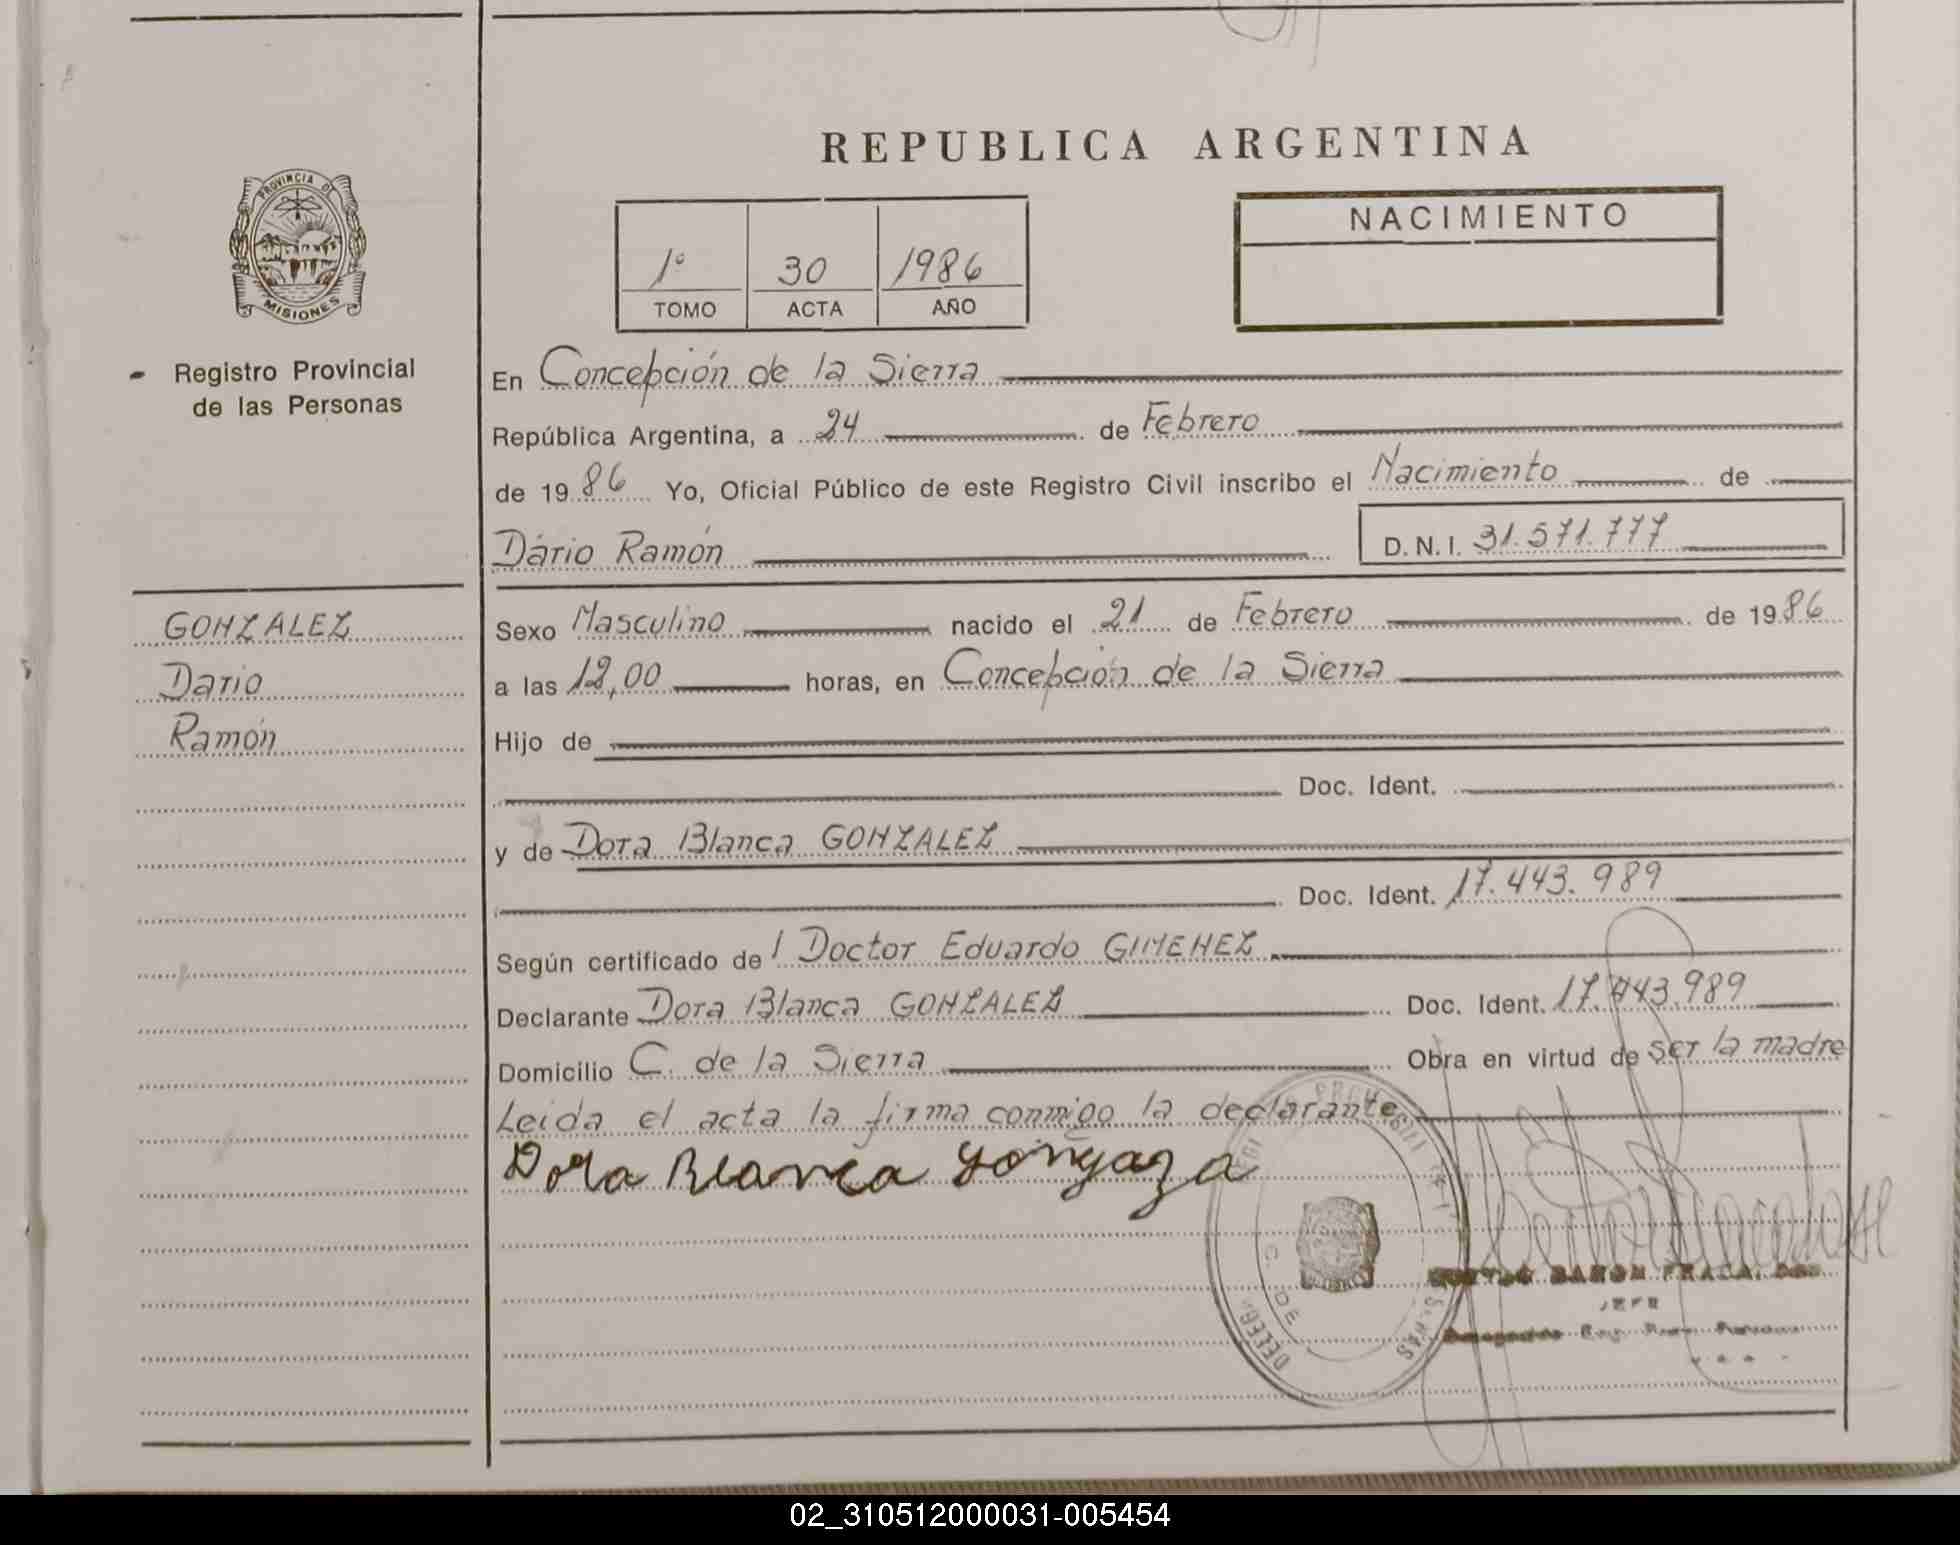 REPUBLICA ARGENTINA
PROVINCIA DE
MISIONES
Registro Provincial
de las Personas
1º 30 1986
TOMO ACTA AÑO
NACIMIENTO
En Concepción de la Sierra
República Argentina, a 24 de Febrero
de 1986 Yo, Oficial Público de este Registro Civil inscribo el Nacimiento de
Dário Ramón D.N.I. 31.571.777
GONZALEZ
Dario
Ramón
Sexo Masculino nacido el 21 de Febrero de 1986
a las 12,00 horas, en Concepción de la Sierra
Hijo de
Doc. Ident.
y de Dora Blanca GONZALEZ
Doc. Ident. 17.443.989
Según certificado del Doctor Eduardo GIMENEZ
Declarante Dora Blanca GONZALEZ Doc. Ident. 17.443.989
Domicilio C. de la Sierra Obra en virtud de ser la madre
Leida el acta la firma conmigo la declarante
Dora Blanca
C. DE
JEFE
02_310512000031-005454